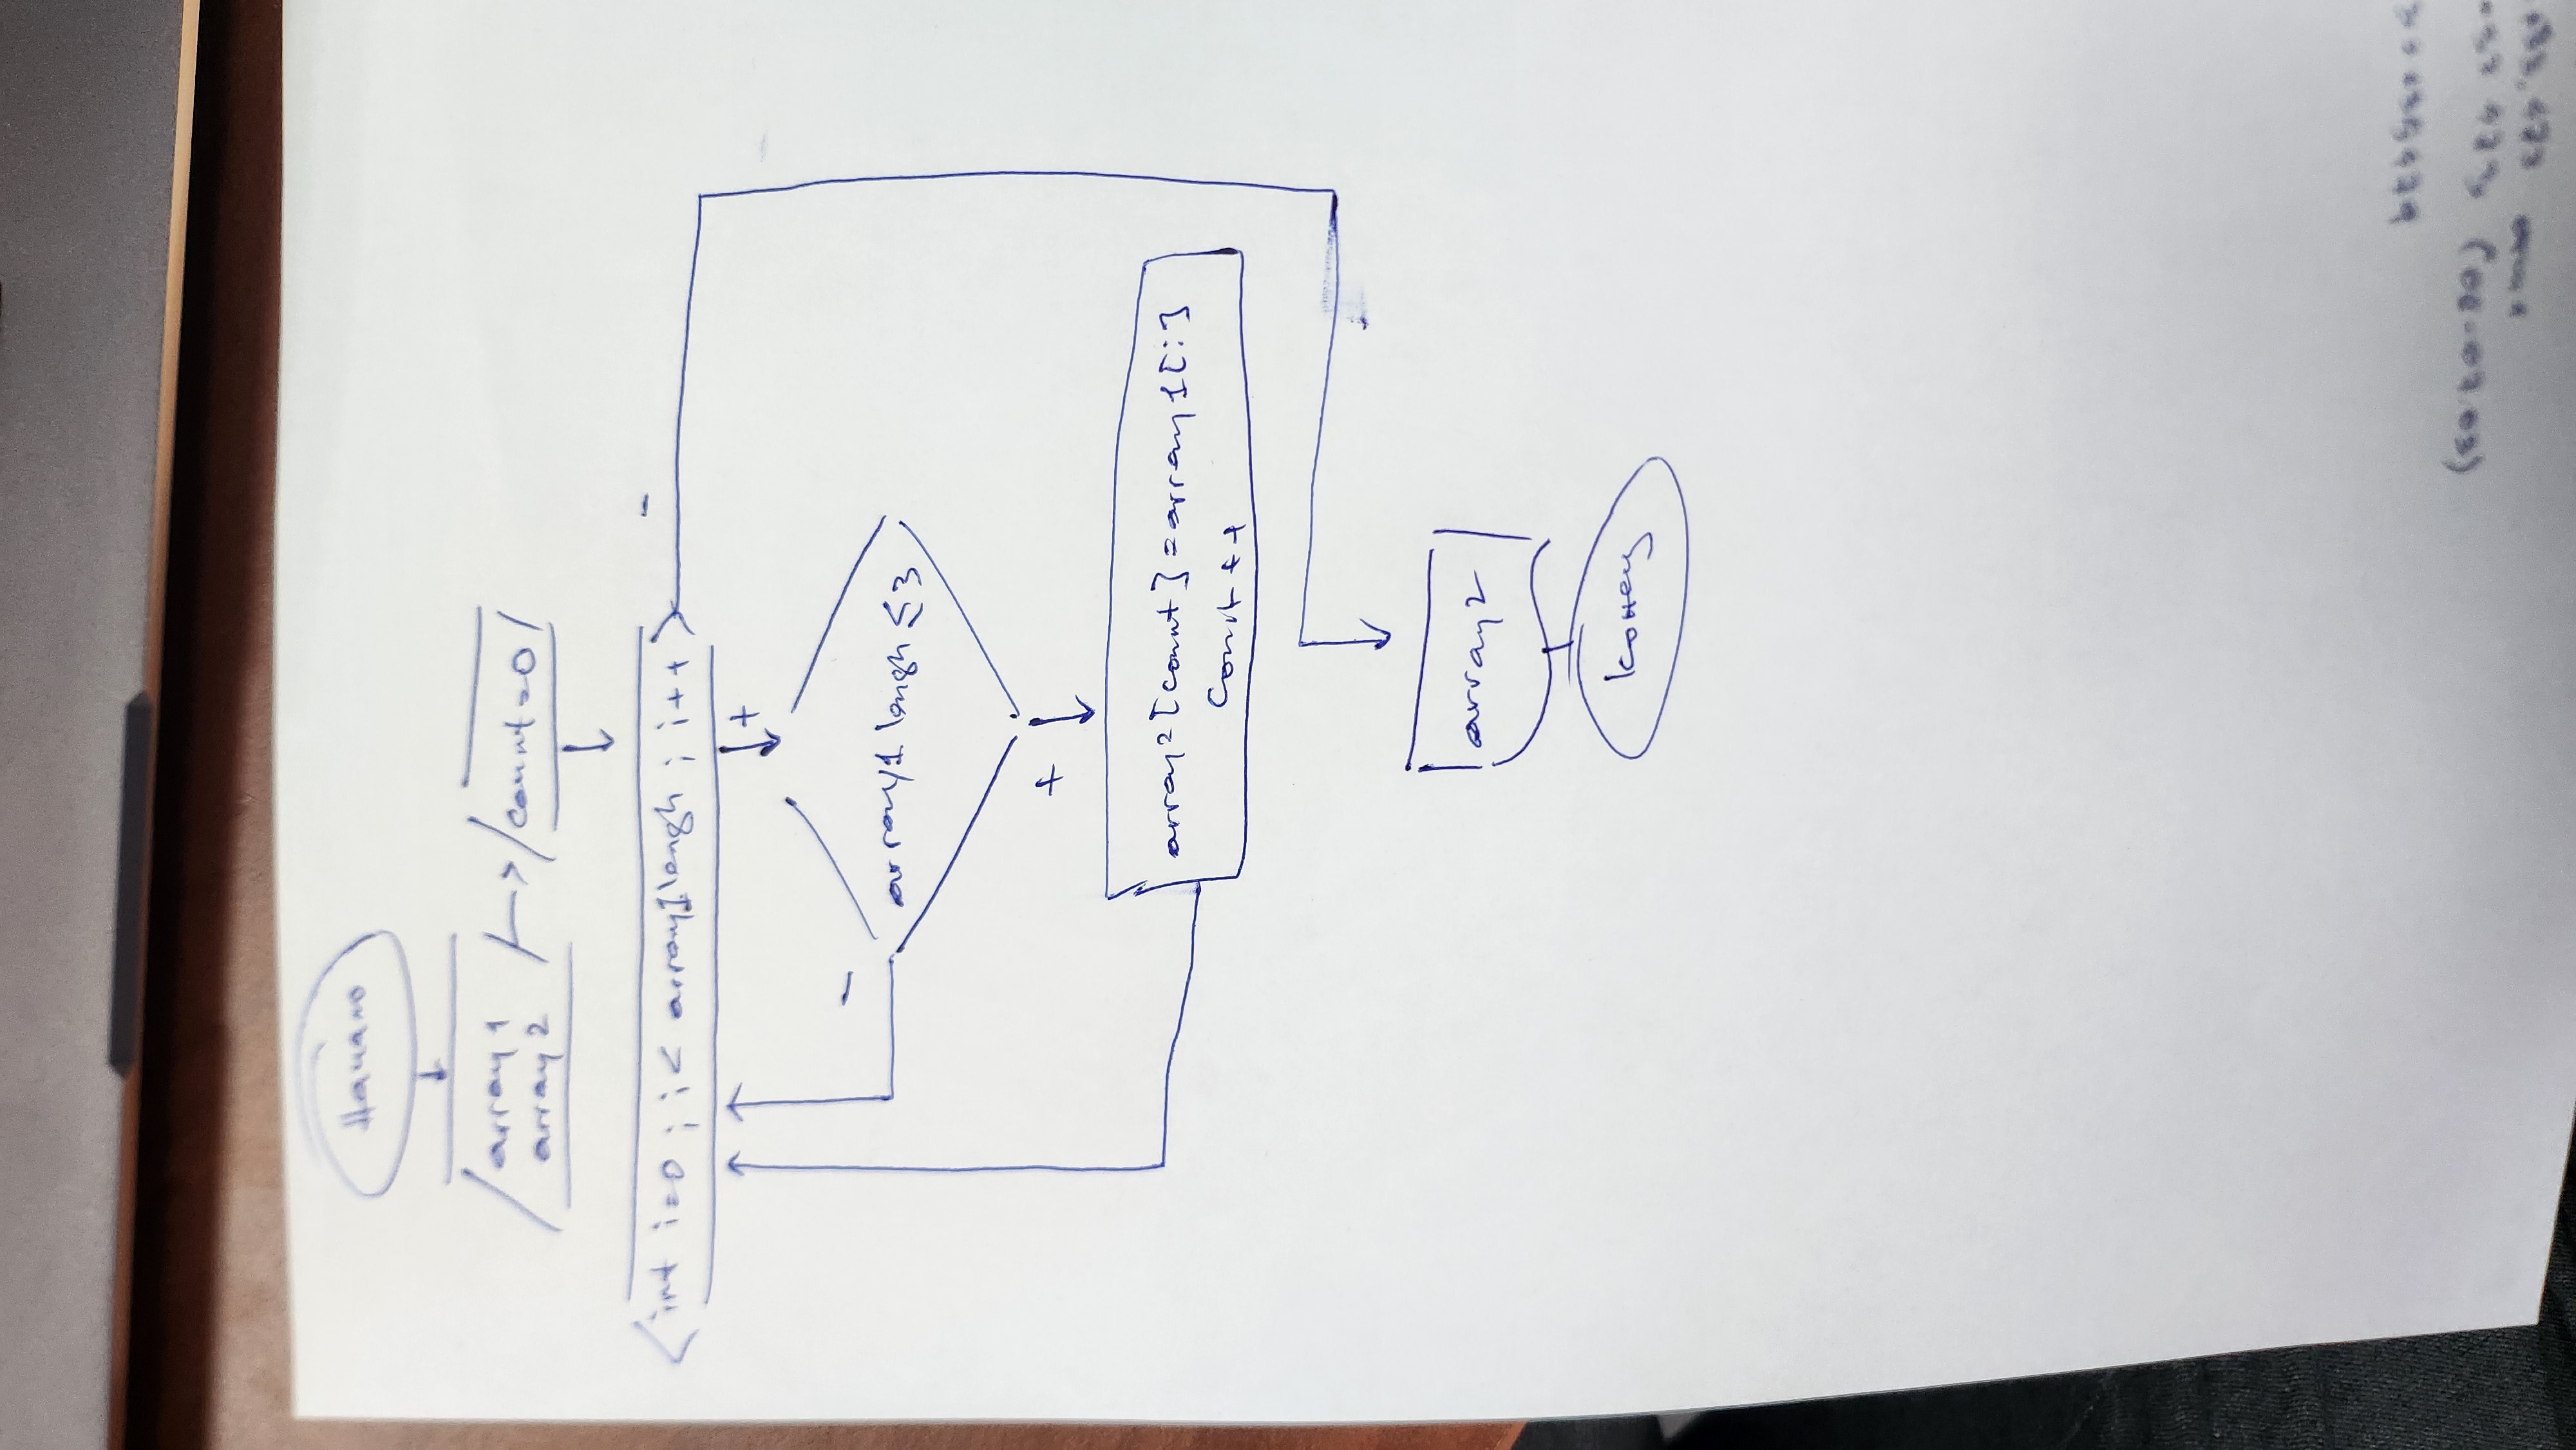 Начало
array1
array2
count=0
int i=0 ; i< array1lengh ; i++
-
+
-
array1 lengh ≤3
+
array2[count]=array1[i]
Count++
array2
Конец